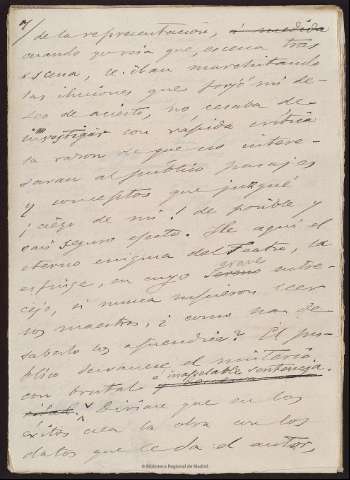 7/ de la representación, á medida
cuando yo veía que, escena tras
escena, se iban marchitando
las ilusiones que forjó mi de-
seo de acierto, no cesaba de
investigar con rápida crítica
la razon de que no intere-
saran al público pasajes
y conceptos que juzgué
¡ciego de mi! de posible y
casi seguro efecto. He aquí el
eterno enigma del Teatro, la
esfinge, en cuyo grave entre-
cejo, si nunca supieron leer
los maestros, ¿como han de
saberlo los aprendices? El pú-
blico desvanece el misterio
con brutal é inapelable sentencia.
Diríase que en los
éxitos crea la obra con los
datos que le da el autor,
© Biblioteca Regional de Madrid